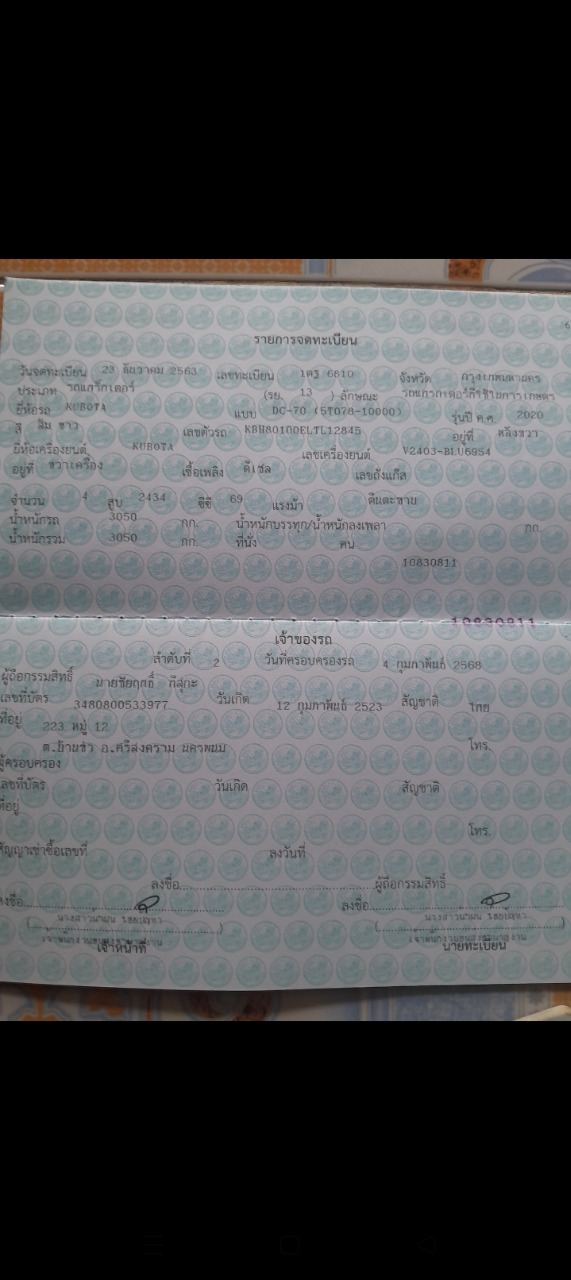 รายการจดทะเบียน
วันจดทะเบียน 23 ธันวาคม 2563 เลขทะเบียน 1ตฐ 6810 จังหวัด กรุงเทพมหานคร
ประเภท รถแทรกเตอร์ (รย. 13 ) ลักษณะ
ยี่ห้อรถ KUBOTA แบบ DC-70 (5T078-10000) รุ่นปี ค.ศ. 2020
สี ส้ม ขาว เลขตัวรถ KBH80100ELTL12845 อยู่ที่ หลังขวา
ยี่ห้อเครื่องยนต์ KUBOTA เลขเครื่องยนต์ V2403-BLU6954
อยู่ที่ ขวาเครื่อง เชื้อเพลิง ดีเซล เลขถังแก๊ส
จำนวน 4 สูบ 2434 ซีซี 69 แรงม้า ตีนตะขาบ
น้ำหนักรถ 3050 กก. น้ำหนักบรรทุก/น้ำหนักลงเพลา กก.
น้ำหนักรวม 3050 กก. ที่นั่ง คน
10830811
10830811
เจ้าของรถ
ลำดับที่ 2 วันที่ครอบครองรถ 4 กุมภาพันธ์ 2568
ผู้ถือกรรมสิทธิ์ นายชัยฤทธิ์ กีสุกะ
เลขที่บัตร 3480800533977 วันเกิด 12 กุมภาพันธ์ 2523 สัญชาติ ไทย
ที่อยู่ 223 หมู่ 12
ต.บ้านข่า อ.ศรีสงคราม นครพนม โทร.
ผู้ครอบครอง
เลขที่บัตร วันเกิด สัญชาติ
ที่อยู่
โทร.
สัญญาเช่าซื้อเลขที่ ลงวันที่
ลงชื่อ ผู้ถือกรรมสิทธิ์
ลงชื่อ ลงชื่อ
เจ้าหน้าที่ นายทะเบียน